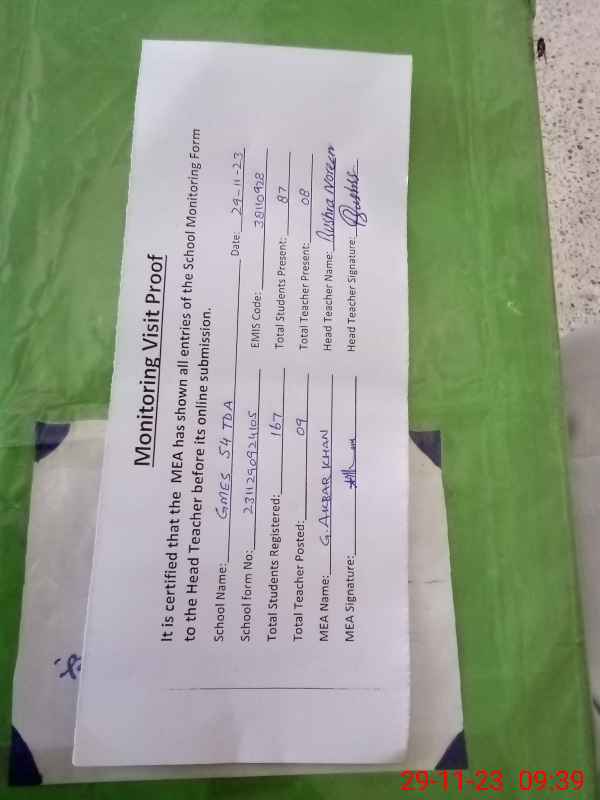 Monitoring Visit Proof
It is certified that the MEA has shown all entries of the School Monitoring Form
to the Head Teacher before its online submission.
School Name: GMES 54 TDA Date: 29-11-23
School form No: 2311290924105 EMIS Code: 38110928
Total Students Registered: 167 Total Students Present: 87
Total Teacher Posted: 09 Total Teacher Present: 08
MEA Name: G. AKBAR KHAN Head Teacher Name: Bushra Noreen
MEA Signature: Head Teacher Signature:
29-11-23 09:39